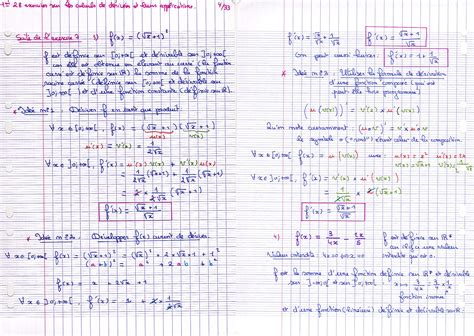 28 exercices sur les calculs de dérivées et leurs applications. 4/33
Suite de l'exercice 7 3) f(x) = (√x + 1)²
f est définie sur [0;+∞[ et dérivable sur ]0;+∞[
car elle est obtenue en élevant au carré (la fonction
carré est définie sur ℝ) la somme de la fonction
racine carrée (définie sur [0;+∞[ et dérivable sur
]0;+∞[) et d'une fonction constante (définie sur ℝ).
* Idée n°1 Dériver f en tant que produit
∀x ∈ [0;+∞[, f(x) = (√x + 1)(√x + 1)
u(x) v(x)
u'(x) = 1/(2√x) v'(x) = 1/(2√x)
∀x ∈ ]0;+∞[, f'(x) = u'(x) v(x) + v'(x) u(x)
= 1/(2√x) (√x + 1) + 1/(2√x) (√x + 1)
= 2 × 1/(2√x) × (√x + 1)
f'(x) = (√x + 1)/√x
* Idée n°2. Développer f(x) avant de dériver.
∀x ∈ [0;+∞[ f(x) = (√x + 1)² = (√x)² + 2 × √x × 1 + 1²
(a + b)² = a² + 2ab + b²
f(x) = x + 2√x + 1
∀x ∈ ]0;+∞[, f'(x) = 1 + 2 × 1/(2√x)
f'(x) = 1 + 1/√x
On peut aussi laisser f'(x) = 1 + 1/√x
* Idée n°3. Utiliser la formule de dérivation
d'une fonction composée (mais est
peut être hors programme)
(u(v(x)))' = v'(x) × u'(v(x))
Qu'on note couramment (u∘v)' = v' × u'∘v
le symbole ∘ ("rond") étant celui de la composition.
∀x ∈ [0;+∞[ f(x) = u(v(x)) avec u(x) = x² u'(x) = 2x
∀x ∈ ]0;+∞[, f'(x) = v'(x) × u'(v(x))
= 1/(2√x) × 2(√x + 1)
f'(x) = (√x + 1)/√x
4) f(x) = 3/(4x) - 2x/5 f est définie sur ℝ*
f est la somme d'une fonction définie sur ℝ* et dérivable
fonction inverse
et d'une fonction (linéaire) définie sur ℝ